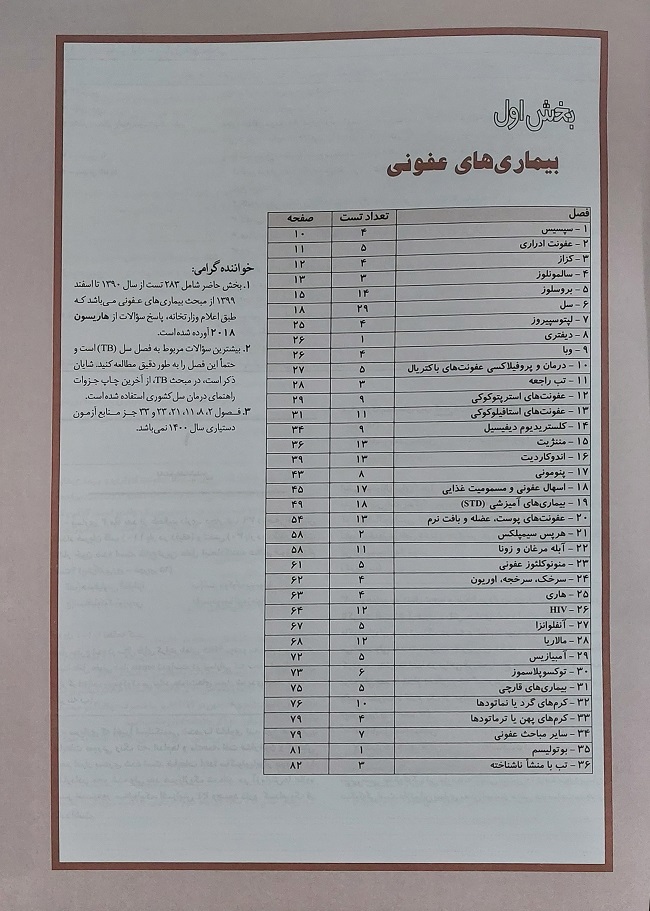 بخش اول
بیماری‌های عفونی
فصل تعداد تست صفحه
۱ - سپسیس ۴ ۱۰
۲ - عفونت ادراری ۵ ۱۱
۳ - کزاز ۴ ۱۲
۴ - سالمونلوز ۳ ۱۳
۵ - بروسلوز ۱۴ ۱۵
۶ - سل ۲۹ ۱۸
۷ - لپتوسپیروز ۴ ۲۵
۸ - دیفتری ۱ ۲۶
۹ - وبا ۴ ۲۶
۱۰ - درمان و پروفیلاکسی عفونت‌های باکتریال ۵ ۲۷
۱۱ - تب راجعه ۳ ۲۸
۱۲ - عفونت‌های استرپتوکوکی ۹ ۲۹
۱۳ - عفونت‌های استافیلوکوکی ۱۱ ۳۱
۱۴ - کلستریدیوم دیفیسیل ۹ ۳۴
۱۵ - مننژیت ۱۳ ۳۶
۱۶ - اندوکاردیت ۱۳ ۳۹
۱۷ - پنومونی ۸ ۴۳
۱۸ - اسهال عفونی و مسمومیت غذایی ۱۷ ۴۵
۱۹ - بیماری‌های آمیزشی (STD) ۱۸ ۴۹
۲۰ - عفونت‌های پوست، عضله و بافت نرم ۱۳ ۵۴
۲۱ - هرپس سیمپلکس ۲ ۵۸
۲۲ - آبله مرغان و زونا ۱۱ ۵۸
۲۳ - منونوکلئوز عفونی ۵ ۶۱
۲۴ - سرخک، سرخجه، اوریون ۴ ۶۲
۲۵ - هاری ۴ ۶۳
۲۶ - HIV ۱۲ ۶۴
۲۷ - آنفلوانزا ۵ ۶۷
۲۸ - مالاریا ۱۲ ۶۸
۲۹ - آمیبیازیس ۵ ۷۲
۳۰ - توکسوپلاسموز ۶ ۷۳
۳۱ - بیماری‌های قارچی ۵ ۷۵
۳۲ - کرم‌های گرد یا نماتودها ۱۰ ۷۶
۳۳ - کرم‌های پهن یا ترماتودها ۴ ۷۹
۳۴ - سایر مباحث عفونی ۷ ۷۹
۳۵ - بوتولیسم ۱ ۸۱
۳۶ - تب با منشأ ناشناخته ۳ ۸۲
خواننده گرامی:
۱. بخش حاضر شامل ۲۸۳ تست از سال ۱۳۹۰ تا اسفند
۱۳۹۹ از مبحث بیماری‌های عفونی می‌باشد که
طبق اعلام وزارتخانه، پاسخ سؤالات از هاریسون
۲۰۱۸ آورده شده است.
۲. بیشترین سؤالات مربوط به فصل سل (TB) است و
حتماً این فصل را به طور دقیق مطالعه کنید. شایان
ذکر است، در مبحث TB، از آخرین چاپ جزوات
راهنمای درمان سل کشوری استفاده شده است.
۳. فصول ۲، ۸، ۱۱، ۲۱، ۲۳ و ۳۳ جزء منابع آزمون
دستیاری سال ۱۴۰۰ نمی‌باشد.